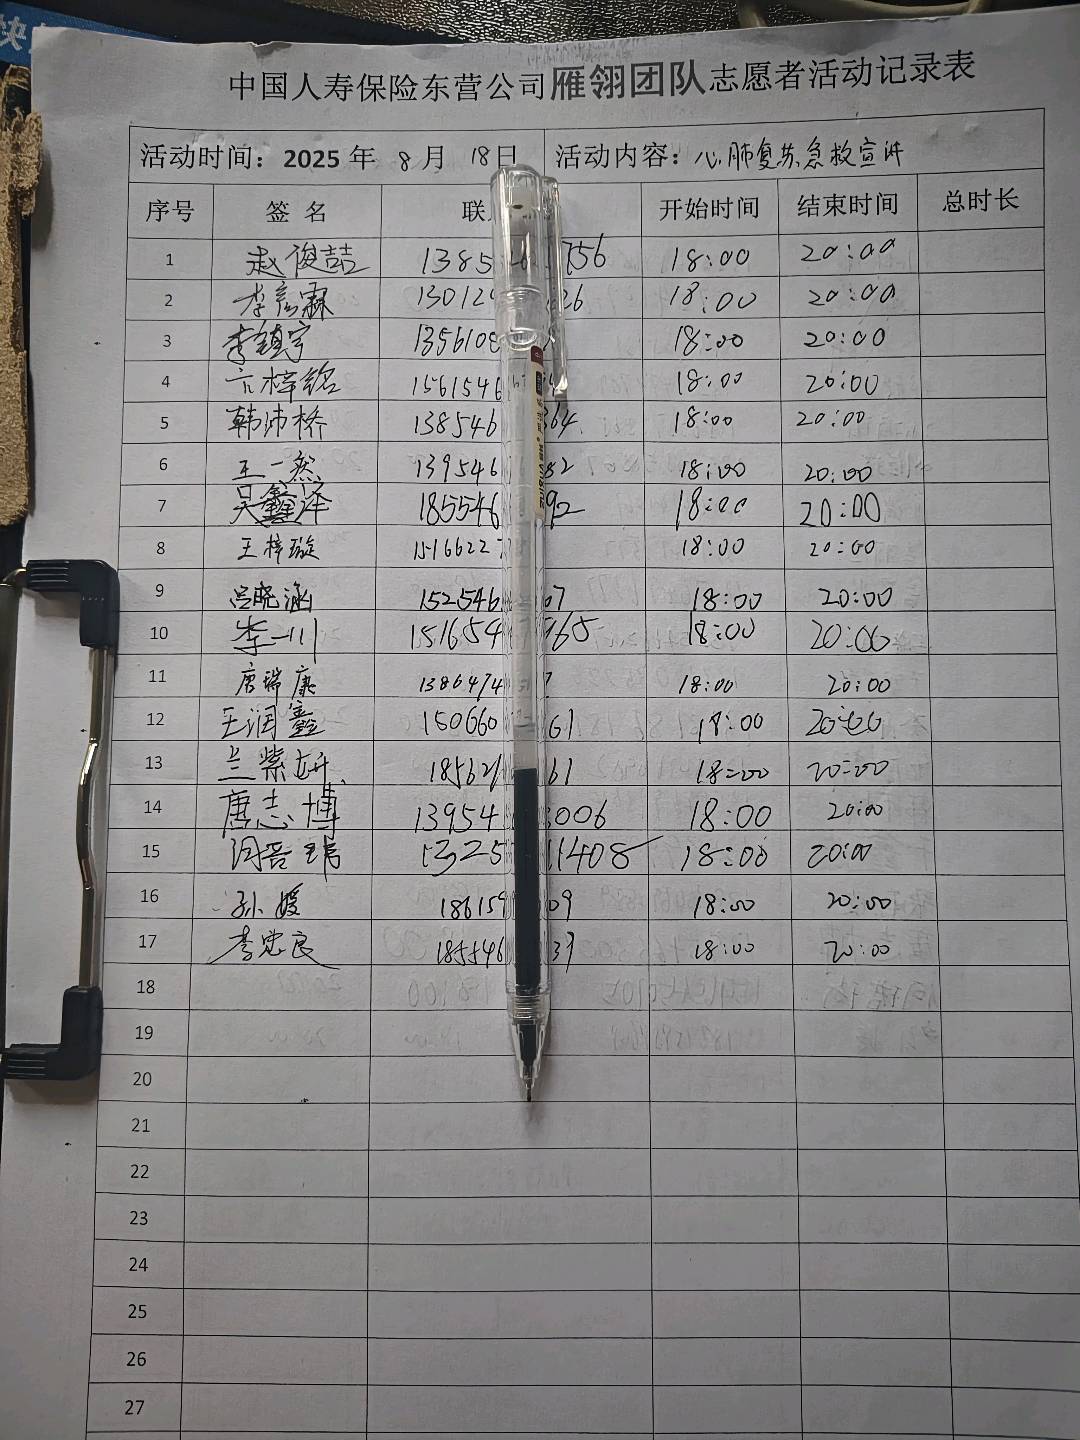 中国人寿保险东营公司雁翎团队志愿者活动记录表
活动时间：2025 年 8 月 18日 活动内容：心肺复苏急救宣讲
序号 签 名 联 开始时间 结束时间 总时长
1 赵俊喆 1385 756 18:00 20:00
2 李彦霖 13012 26 18:00 20:00
3 李镇宇 1356108 18:00 20:00
4 亓梓铭 1561546 18:00 20:00
5 韩沛桥 138546 364 18:00 20:00
6 王一然 139546 82 18:00 20:00
7 吴鑫泽 185546 92 18:00 20:00
8 王梓璇 1516622 18:00 20:00
9 吕晓涵 152546 07 18:00 20:00
10 李一川 151654 965 18:00 20:00
11 唐瑞康 1386474 18:00 20:00
12 王润鑫 150660 61 18:00 20:00
13 兰紫妍 18562 61 18:00 20:00
14 唐志博 13954 006 18:00 20:00
15 1325 1408 18:00 20:00
16 孙媛 186159 09 18:00 20:00
17 李忠良 185546 37 18:00 20:00
18
19
20
21
22
23
24
25
26
27